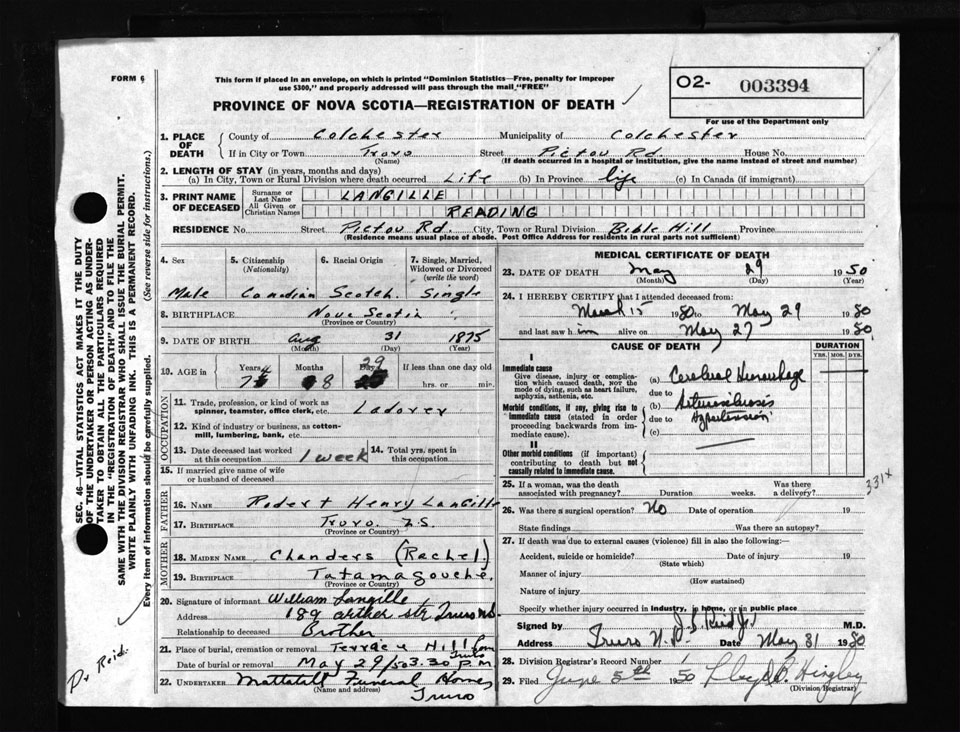 FORM 6
This form if placed in an envelope, on which is printed "Dominion Statistics—Free, penalty for improper
use $300," and properly addressed will pass through the mail "FREE"
O2- 003394
For use of the Department only
PROVINCE OF NOVA SCOTIA—REGISTRATION OF DEATH
1. PLACE OF DEATH
County of Colchester Municipality of Colchester
If in City or Town Truro Street Pictou Rd. House No.
(Name) (If death occurred in a hospital or institution, give the name instead of street and number)
2. LENGTH OF STAY (in years, months and days)
(a) In City, Town or Rural Division where death occurred Life (b) In Province life (c) In Canada (if immigrant)
3. PRINT NAME OF DECEASED
Surname or Last Name LANGILLE
All Given or Christian Names READING
RESIDENCE No. Street Pictou Rd. City, Town or Rural Division Bible Hill Province
(Residence means usual place of abode. Post Office Address for residents in rural parts not sufficient)
4. Sex Male
5. Citizenship (Nationality) Canadian
6. Racial Origin Scotch.
7. Single, Married, Widowed or Divorced (write the word) Single
8. BIRTHPLACE Nova Scotia
(Province or Country)
9. DATE OF BIRTH Aug 31 1875
(Month) (Day) (Year)
10. AGE in Years Months 8 Days 29 If less than one day old
hrs. or min.
OCCUPATION
11. Trade, profession, or kind of work as
spinner, teamster, office clerk, etc. Laborer
12. Kind of industry or business, as cotton-
mill, lumbering, bank, etc.
13. Date deceased last worked
at this occupation 1 week
14. Total yrs. spent in
this occupation
15. If married give name of wife
or husband of deceased
FATHER
16. NAME Robert Henry Langille
17. BIRTHPLACE Truro N.S.
(Province or Country)
MOTHER
18. MAIDEN NAME Chanders (Rachel)
19. BIRTHPLACE Tatamagouche.
(Province or Country)
20. Signature of informant William Langille
Address 189 Arthur str Truro N.S.
Relationship to deceased Brother
21. Place of burial, cremation or removal Terrace Hill Truro
Date of burial or removal May 29/50 3.30 P.M.
22. UNDERTAKER Mattatall Funeral Homes
(Name and address) Truro
MEDICAL CERTIFICATE OF DEATH
23. DATE OF DEATH May 29 1950
(Month) (Day) (Year)
24. I HEREBY CERTIFY that I attended deceased from:
March 15 1950 to May 29 1950
and last saw him alive on May 27 1950
CAUSE OF DEATH
DURATION
YRS. MOS. DYS.
I
Immediate cause
Give disease, injury or complica-
tion which caused death, NOT the
mode of dying, such as heart failure,
asphyxia, asthenia, etc.
(a) Cerebral Hemorrhage
due to
Morbid conditions, if any, giving rise to
immediate cause (stated in order
proceeding backwards from im-
mediate cause).
(b) Arteriosclerosis
due to Hypertension
(c)
II
Other morbid conditions (if important)
contributing to death but not
causally related to immediate cause.
25. If a woman, was the death
associated with pregnancy? Duration weeks. Was there
a delivery?
331x
26. Was there a surgical operation? No Date of operation 19
State findings Was there an autopsy?
27. If death was due to external causes (violence) fill in also the following:—
Accident, suicide or homicide? Date of injury 19
(State which)
Manner of injury
(How sustained)
Nature of injury
Specify whether injury occurred in industry, in home, or in public place
Signed by M.D.
Address Truro N.S. Date May 31 1950
28. Division Registrar's Record Number 1
29. Filed June 5th 1950 Lloyd B. Hingley
(Division Registrar)
SEC. 46—VITAL STATISTICS ACT MAKES IT THE DUTY
OF THE UNDERTAKER OR PERSON ACTING AS UNDER-
TAKER TO OBTAIN ALL THE PARTICULARS REQUIRED
IN THE "REGISTRATION OF DEATH" AND TO FILE THE
SAME WITH THE DIVISION REGISTRAR WHO SHALL ISSUE THE BURIAL PERMIT.
WRITE PLAINLY WITH UNFADING INK. THIS IS A PERMANENT RECORD.
Every item of information should be carefully supplied. (See reverse side for instructions.)
Dr Reid.